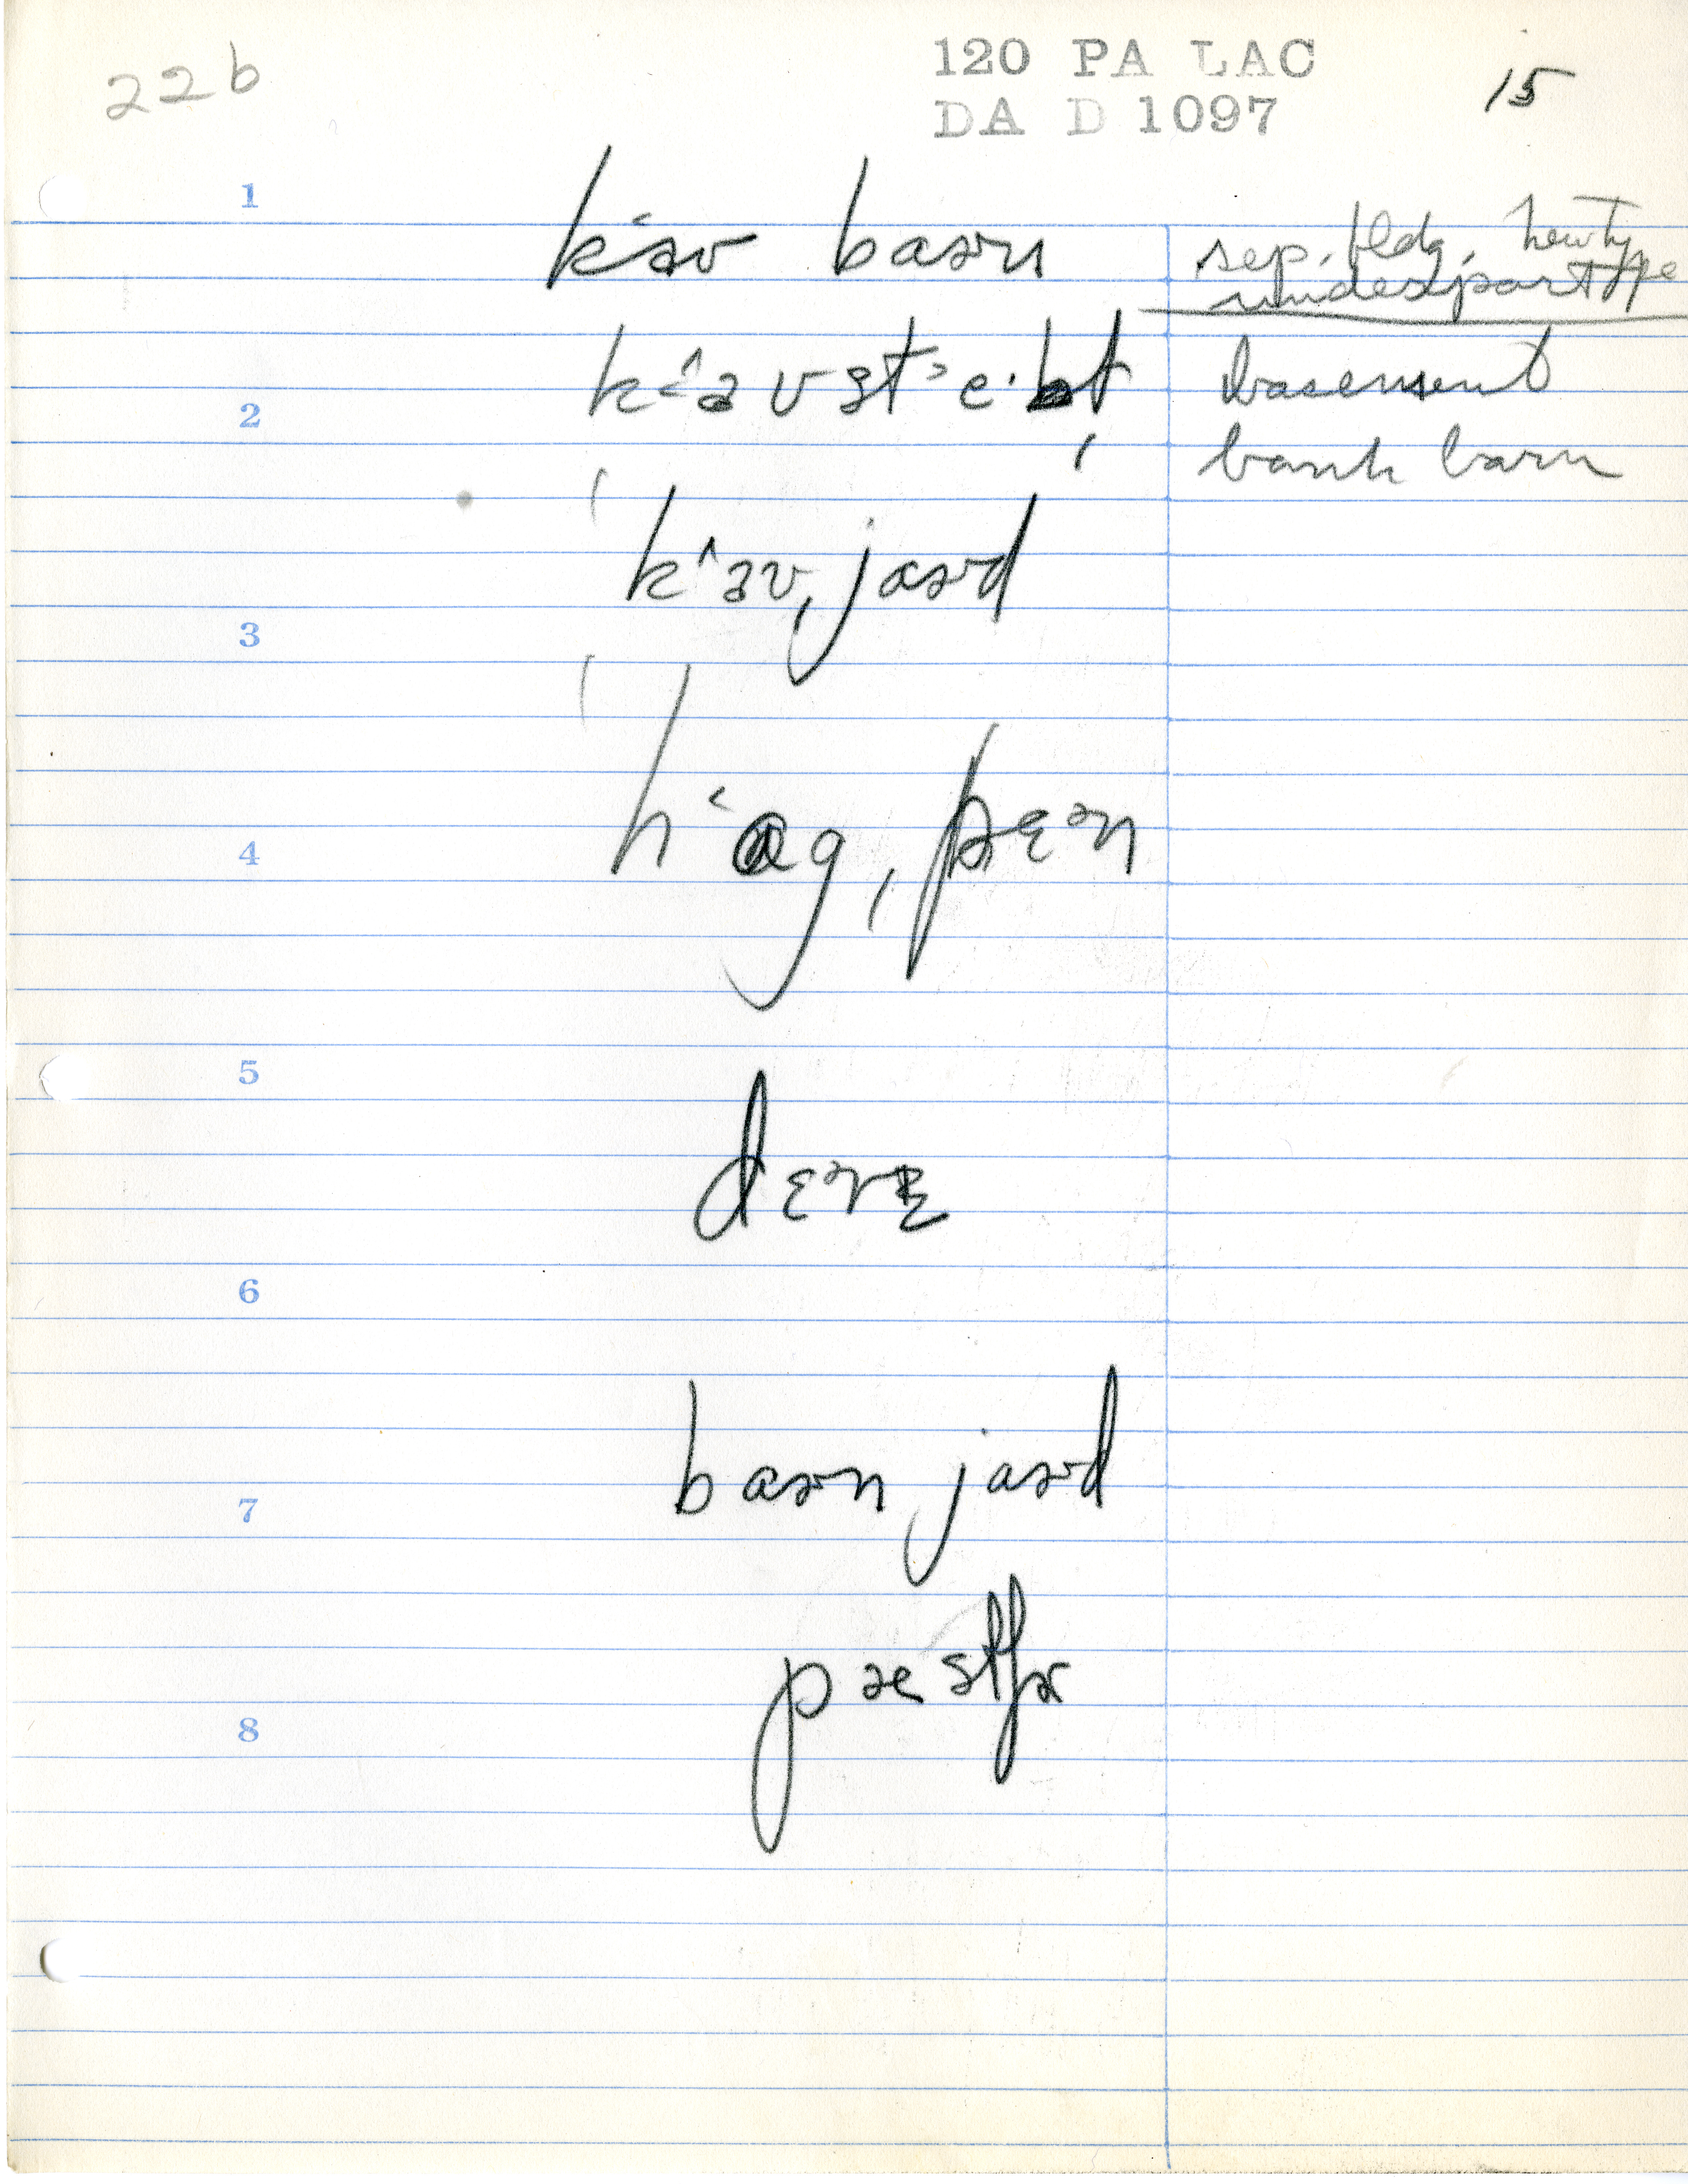 22b
120 PA LAC
DA D 1097
15
1
k‘aʊ baɚn
sep. bldg. new type
under part type
2
k‘aʊ st‘e·bɫ
basement
bank barn
3
ˈk‘aʊˌjaɚd
4
ˈh‘ɑgˌpɛᵊn
5
dɛɚɪ
6
7
baɚn jaɚd
8
pæstʃɚ